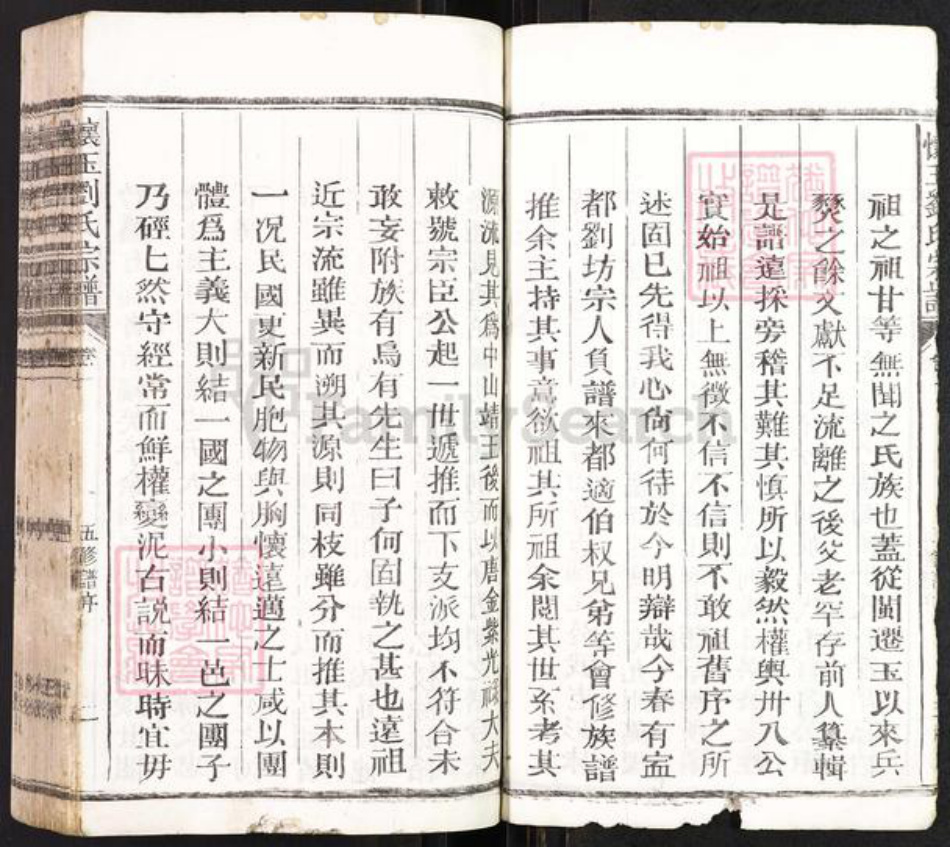 祖之祖甘等無聞之氏族也蓋從閩遷玉以來兵
燹之餘文獻不足流離之後父老罕存前人纂輯
是譜遠採旁稽其難其慎所以毅然權輿卅八公
實始祖以上無徵不信不信則不敢祖舊序之所
述固已先得我心尙何待於今明辯哉今春有寍
都劉坊宗人負譜來都適伯权兄第等會修族譜
推余主持其事意欲祖其所祖余閱其世系考其
源流見其爲中山靖王後而以唐金紫光祿大夫
敕號宗臣公起一世遞推而下支派均不符合未
敢妄附族有烏有先生曰子何固執之甚也遠祖
近宗流雖異而溯其源則同枝雖分而推其本則
一况民國更新民胞物與胸懷遠邁之士咸以團
體爲主義大則結一國之團小則結一邑之團子
乃硜匕然守經常而鮮權變泥古説而昧時宜毋
懷玉劉氏宗譜
五修譜序
FamilySearch